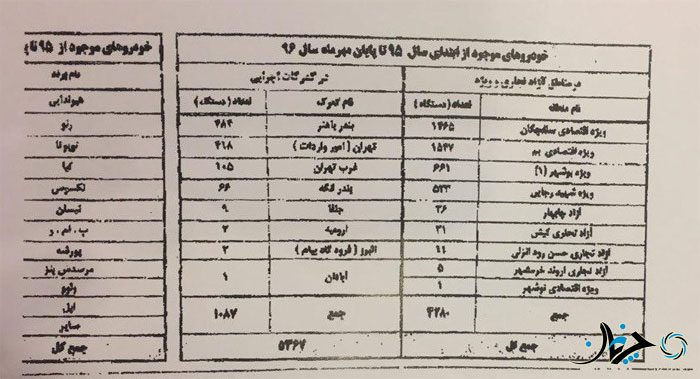 خودروهای موجود از ابتدای سال ۹۵ تا پایان مهرماه سال ۹۶
در مناطق آزاد تجاری و ویژه در گمرکات اجرایی
نام منطقه تعداد (دستگاه) نام گمرک تعداد (دستگاه)
ویژه اقتصادی سلفچگان ۱۴۶۵ بندر باهنر ۴۸۴
ویژه اقتصادی بم ۱۵۴۷ تهران (امور واردات) ۴۱۸
ویژه بوشهر (۱) ۶۶۱ غرب تهران ۱۰۵
ویژه شهید رجایی ۵۲۳ بندر لنگه ۶۶
آزاد چابهار ۳۶ جلفا ۹
آزاد تجاری کیش ۳۱ ارومیه ۲
آزاد تجاری حسن رود انزلی ۱۱ البرز (فرودگاه پیام) ۲
آزاد تجاری اروند خرمشهر ۵ آبادان ۱
ویژه اقتصادی نوشهر ۱
جمع ۴۲۸۰ جمع ۱۰۸۷
جمع کل ۵۳۶۷
خودروهای موجود از ۹۵ تا
نام برند
هیوندایی
رنو
تویوتا
کیا
لکسوس
نیسان
ب . ام . و
پورشه
مرسدس بنز
ولوو
اپل
سایر
جمع کل
چرخان